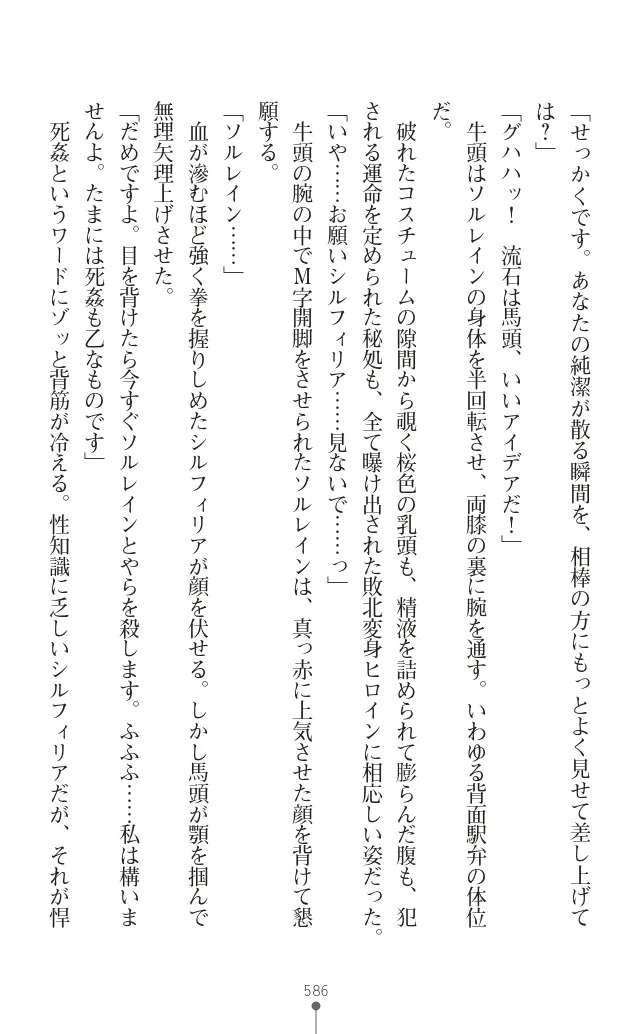 「せっかくです。あなたの純潔が散る瞬間を、相棒の方にもっとよく見せて差し上げて
は？」
「グハハッ！　流石は馬頭、いいアイデアだ！」
　牛頭はソルレインの身体を半回転させ、両膝の裏に腕を通す。いわゆる背面駅弁の体位
だ。
　破れたコスチュームの隙間から覗く桜色の乳頭も、精液を詰められて膨らんだ腹も、犯
される運命を定められた秘処も、全て曝け出された敗北変身ヒロインに相応しい姿だった。
「いや……お願いシルフィリア……見ないで……っ」
　牛頭の腕の中でＭ字開脚をさせられたソルレインは、真っ赤に上気させた顔を背けて懇
願する。
「ソルレイン……」
　血が滲むほど強く拳を握りしめたシルフィリアが顔を伏せる。しかし馬頭が顎を掴んで
無理矢理上げさせた。
「だめですよ。目を背けたら今すぐソルレインとやらを殺します。ふふふ……私は構いま
せんよ。たまには死姦も乙なものです」
　死姦というワードにゾッと背筋が冷える。性知識に乏しいシルフィリアだが、それが悍
586